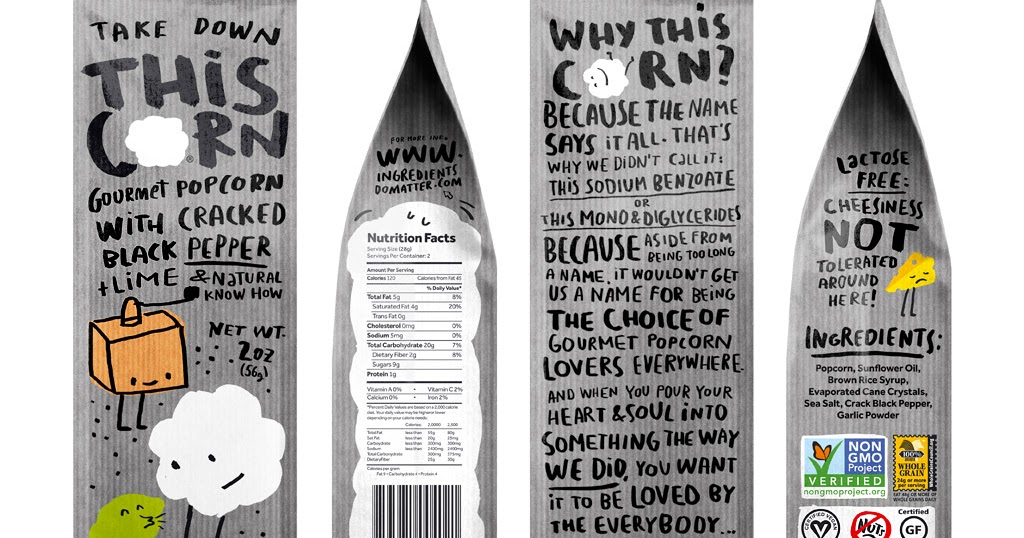 TAKE DOWN
THIS
CORN®
GOURMET POPCORN
WITH CRACKED
BLACK PEPPER
+ LIME & NATURAL
KNOW HOW
NET WT.
2oz
(56g)
FOR MORE INFO
WWW.
INGREDIENTS
DOMATTER.COM
Nutrition Facts
Serving Size (28g)
Servings Per Container: 2
Amount Per Serving
Calories 120 Calories from Fat 45
% Daily Value*
Total Fat 5g 8%
Saturated Fat 4g 20%
Trans Fat 0g
Cholesterol 0mg 0%
Sodium 5mg 0%
Total Carbohydrate 20g 7%
Dietary Fiber 2g 8%
Sugars 9g
Protein 1g
Vitamin A 0% • Vitamin C 2%
Calcium 0% • Iron 2%
*Percent Daily Values are based on a 2,000 calorie
diet. Your daily value may be higher or lower
depending on your calorie needs.
Calories: 2,000 2,500
Total Fat less than 65g 80g
Sat Fat less than 20g 25mg
WHY THIS
CORN?
BECAUSE THE NAME
SAYS iT ALL. THAT'S
WHY WE DIDN'T CALL iT:
THIS SODIUM BENZOATE
OR
THIS MONO & DIGLYCERIDES
BECAUSE ASIDE FROM
BEING TOO LONG
A NAME, iT WOULDN'T GET
US A NAME FOR BEING
THE CHOICE OF
GOURMET POPCORN
LOVERS EVERYWHERE.
AND WHEN YOU POUR YOUR
HEART & SOUL iNTO
SOMETHING THE WAY
WE DiD, YOU WANT
iT TO BE LOVED BY
THE EVERYBODY...
LACTOSE
FREE:
CHEESINESS
NOT
TOLERATED
AROUND
HERE!
INGREDIENTS:
Popcorn, Sunflower Oil,
Brown Rice Syrup,
Evaporated Cane Crystals,
Sea Salt, Crack Black Pepper,
Garlic Powder
NON
GMO
Project
VERIFIED
nongmoproject.org
100%
WHOLE
GRAIN
24g or more
per serving
EAT 48g OR MORE OF
WHOLE GRAINS DAILY
CERTIFIED VEGAN
NUTS
Certified
GF